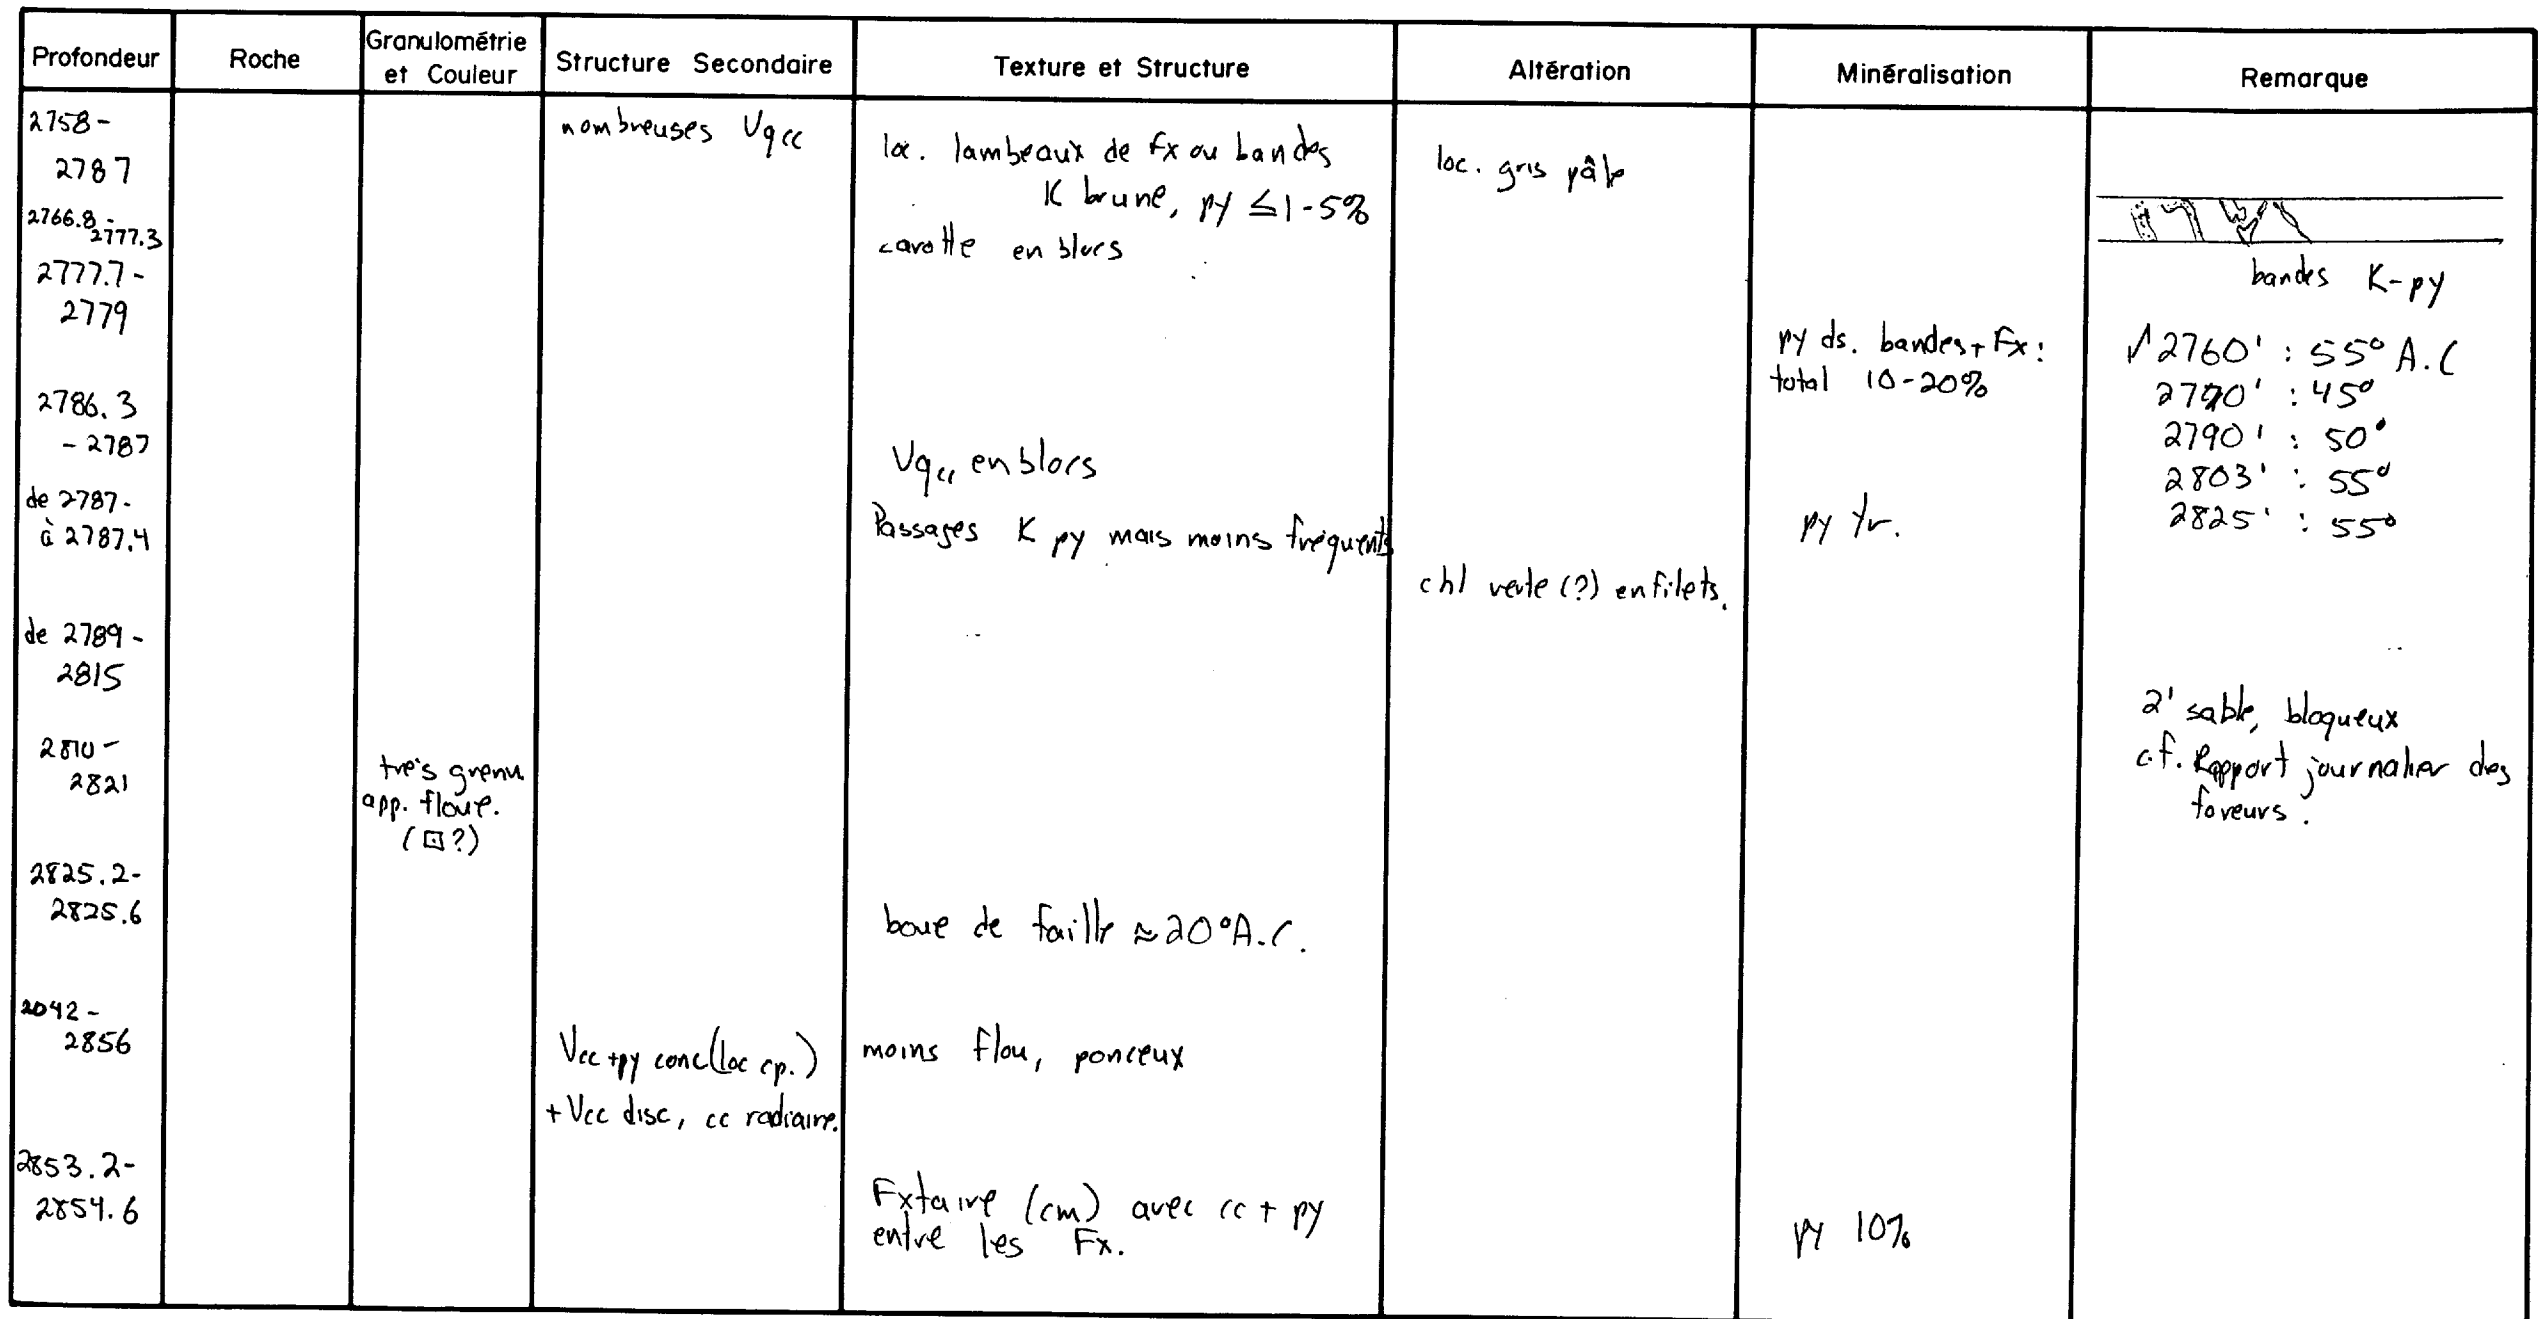 Profondeur Roche Granulométrie et Couleur Structure Secondaire Texture et Structure Altération Minéralisation Remarque
2758-
2787
nombreuses Vqcc
loc. lambeaux de fx ou bandes
K brune, py ≤1-5%
loc. gris pâle
2766.8-
2777.3
carotte en blocs
2777.7-
2779
bandes K-py
py ds. bandes + Fx:
total 10-20%
2760' : 55° A.C
2770' : 45°
2790' : 50°
2803' : 55°
2825' : 55°
2786.3
- 2787
Vqcc en blocs
de 2787-
à 2787.4
Passages K py mais moins fréquents
py tr.
chl verte (?) en filets.
de 2789-
2815
2' sable, bloqueux
c.f. Rapport journalier des
foreurs.
2810-
2821
très grenu
app. floue.
(⊡?)
2825.2-
2825.6
boue de faille ≈20°A.C.
2042-
2856
Vcc+py conc(loc cp.)
+Vcc disc, cc radiaire.
moins flou, ponceux
2853.2-
2854.6
Fxtaire (cm) avec cc + py
entre les Fx.
py 10%